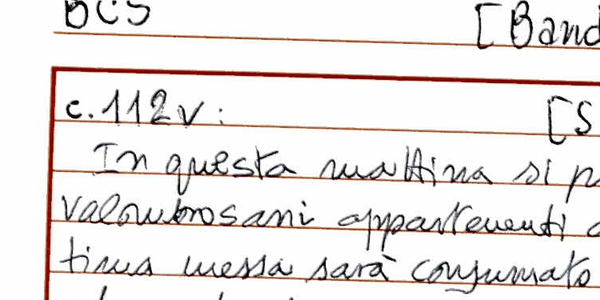 BCS [Band
c. 112v: [S
In questa mattina si p
valombrosani appartenenti a
tima messa sarà consumato